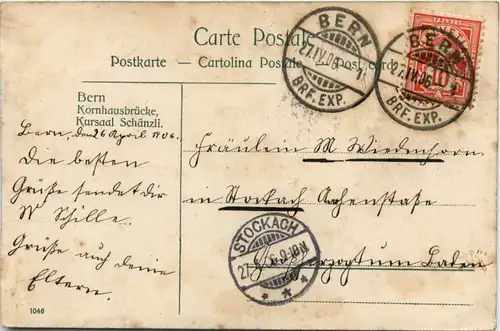 Carte Postale
Postkarte — Cartolina Postale — Post card
BERN
27.IV.06
BRF. EXP.
BERN
27.IV.06
BRF. EXP.
10
Bern
Kornhausbrücke,
Kursaal Schänzli.
Bern, den 26 April 1906.
Die besten
Grüße sendet dir
W Schille.
Grüße auch deine
Eltern.
Fräulein M. Wiedenhorn
in Stockach
Großherzogtum Baden
STOCKACH
27
1046